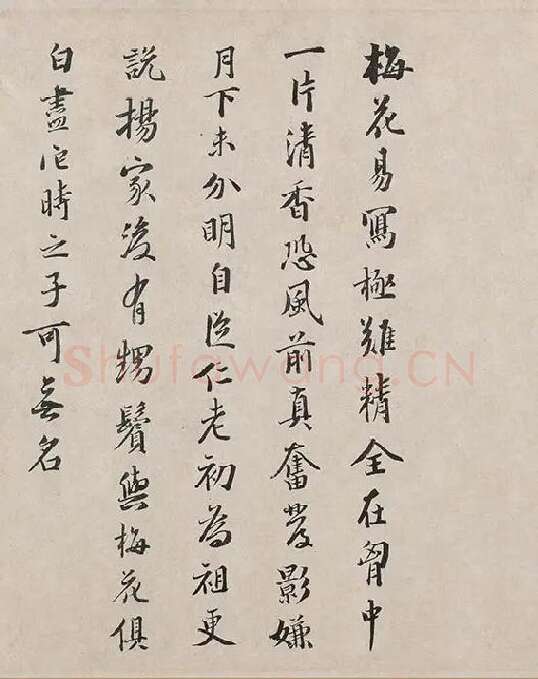 梅花易寫極難精全在胷中
一片清香恐風前真奮發影嫌
月下未分明自從仁老初為祖更
說楊家後有甥鬢與梅花俱
白盡他時之子可無名
Shufawang.CN